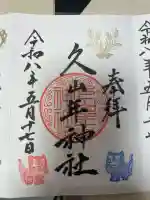 奉拝
久山年神社
令和八年五月十七日
令和八年五月十